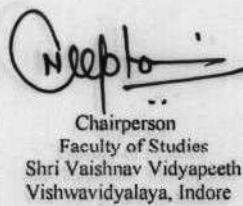 Chairperson
Faculty of Studies
Shri Vaishnav Vidyapeeth
Vishwavidyalaya, Indore